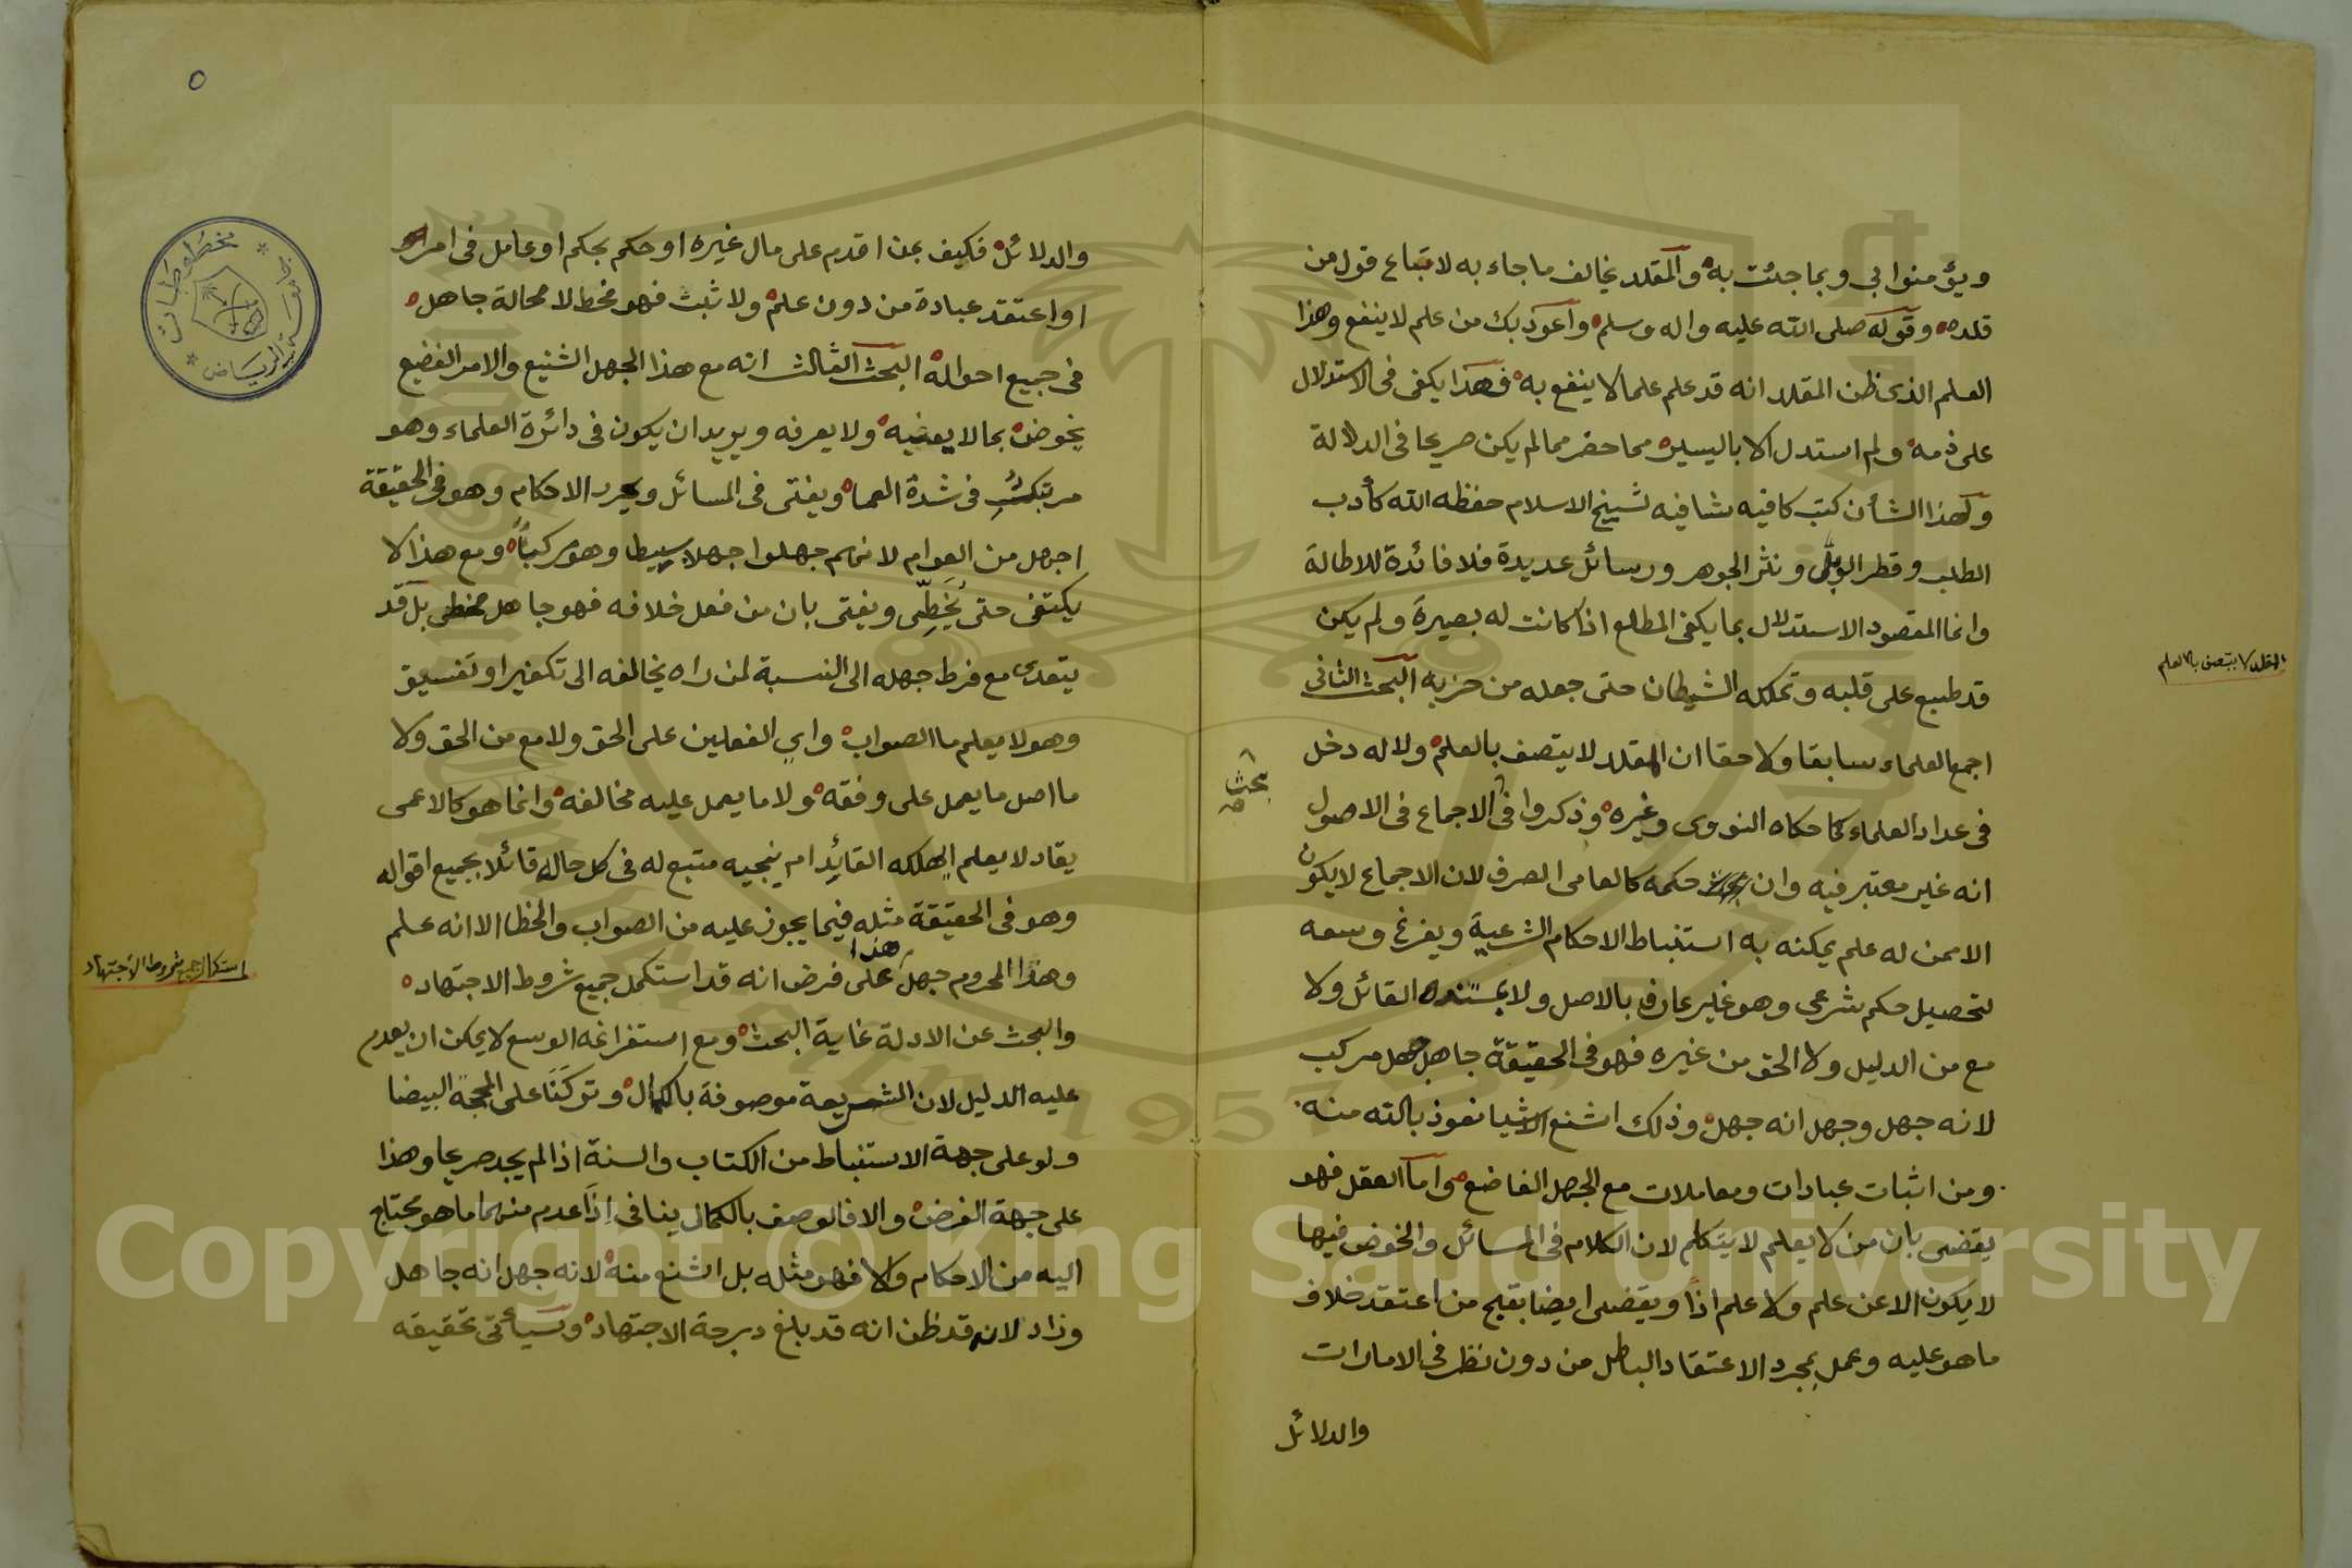 ويؤمنوا بي وبما جئت به والمقلد يخالف ما جاء به لاتباع قول من
قلده وقوله صلى الله عليه واله وسلم واعوذ بك من علم لا ينفع وهذا
العلم الذى ظن المقلد انه قد علم علما لا ينفع به فهذا يكفى فى الاستدلال
على ذمه ولم استدل الا باليسير مما حضر مما لم يكن صريحا فى الدلالة
ولهذا الشأن كتب كافيه شافيه لشيخ الاسلام حفظه الله كأدب
الطلب وقطر الولى ونثر الجوهر ورسائل عديدة فلا فائدة للاطالة
وانما المقصود الاستدلال بما يكفى المطلع اذا كانت له بصيرة ولم يكن
قد طبع على قلبه وتملكه الشيطان حتى جعله من حزبه البحث الثانى
اجمع العلماء سابقا ولاحقا ان المقلد لا يتصف بالعلم ولا له دخل
فى عداد العلماء كما حكاه النووى وغيره وذكروا فى الاجماع فى الاصول
انه غير معتبر فيه وان حكمه كالعامى الصرف لان الاجماع لا يكون
الا ممن له علم يمكنه به استنباط الاحكام الشرعية ويفرغ وسعه
لتحصيل حكم شرعى وهو غير عارف بالاصل ولا بمستند القائل ولا
مع من الدليل ولا الحق من غيره فهو فى الحقيقة جاهل جهل مركب
لانه جهل وجهل انه جهل وذلك اشنع الاشيا نعوذ بالله منه
ومن اثبات عبادات ومعاملات مع الجهل الفاضع واما العقل فهو
يقضى بان من لا يعلم لا يتكلم لان الكلام فى المسائل والخوض فيها
لا يكون الا عن علم ولا علم اذاً ويقضى ايضا بقبح من اعتقد خلاف
ما هو عليه وعمل بمجرد الاعتقاد الباطل من دون نظر فى الامارات
والدلائل
المقلد لا يتصف بالعلم
بحث
٥
والدلائل فكيف بمن اقدم على مال غيره او حكم بحكم او عامل فى امر
او اعتقد عبادة من دون علم ولا ثبت فهو مخط لا محالة جاهل
فى جميع احواله البحث الثالث انه مع هذا الجهل الشنيع والامر الفضيع
يخوض بما لا يعنيه ولا يعرفه ويريد ان يكون فى دائرة العلماء وهو
مرتبك فى شدة العما ويفتى فى المسائل ويحرر الاحكام وهو فى الحقيقة
اجهل من العوام لانهم جهلوا جهلا بسيطا وهو مركباً ومع هذا لا
يكتفى حتى يُخَطِّى ويفتى بان من فعل خلافه فهو جاهل مخطى بل قد
يتعدى مع فرط جهله الى النسبة لمن راه يخالفه الى تكفير او تفسيق
وهو لا يعلم ما الصواب واى الفعلين على الحق ولا مع من الحق ولا
ما اصل ما يعمل على وفقه ولا ما يعمل عليه مخالفه وانما هو كالاعمى
يقاد لا يعلم ايهلكه القائد ام ينجيه متبع له فى كل حاله قائلا بجميع اقواله
وهو فى الحقيقة مثله فيما يجوز عليه من الصواب والخطا الا انه علم
وهذا المحروم جهل هذا على فرض انه قد استكمل جميع شروط الاجتهاد
والبحث عن الادلة غاية البحث ومع استفراغه الوسع لا يمكن ان يعدم
عليه الدليل لان الشريعة موصوفة بالكمال وتركنا على المحجة البيضا
ولو على جهة الاستنباط من الكتاب والسنة اذا لم يجد صريحا وهذا
على جهة الفرض والا فالوصف بالكمال ينافى اذا عدم منهما ما هو محتاج
اليه من الاحكام والا فهو مثله بل اشنع منه لانه جهل انه جاهل
وزاد لانه قد ظن انه قد بلغ درجة الاجتهاد وسيأتى تحقيقه
استكمال جميع شروط الاجتهاد
مخطوطات
الرياض
Copyright © King Saud University
1957